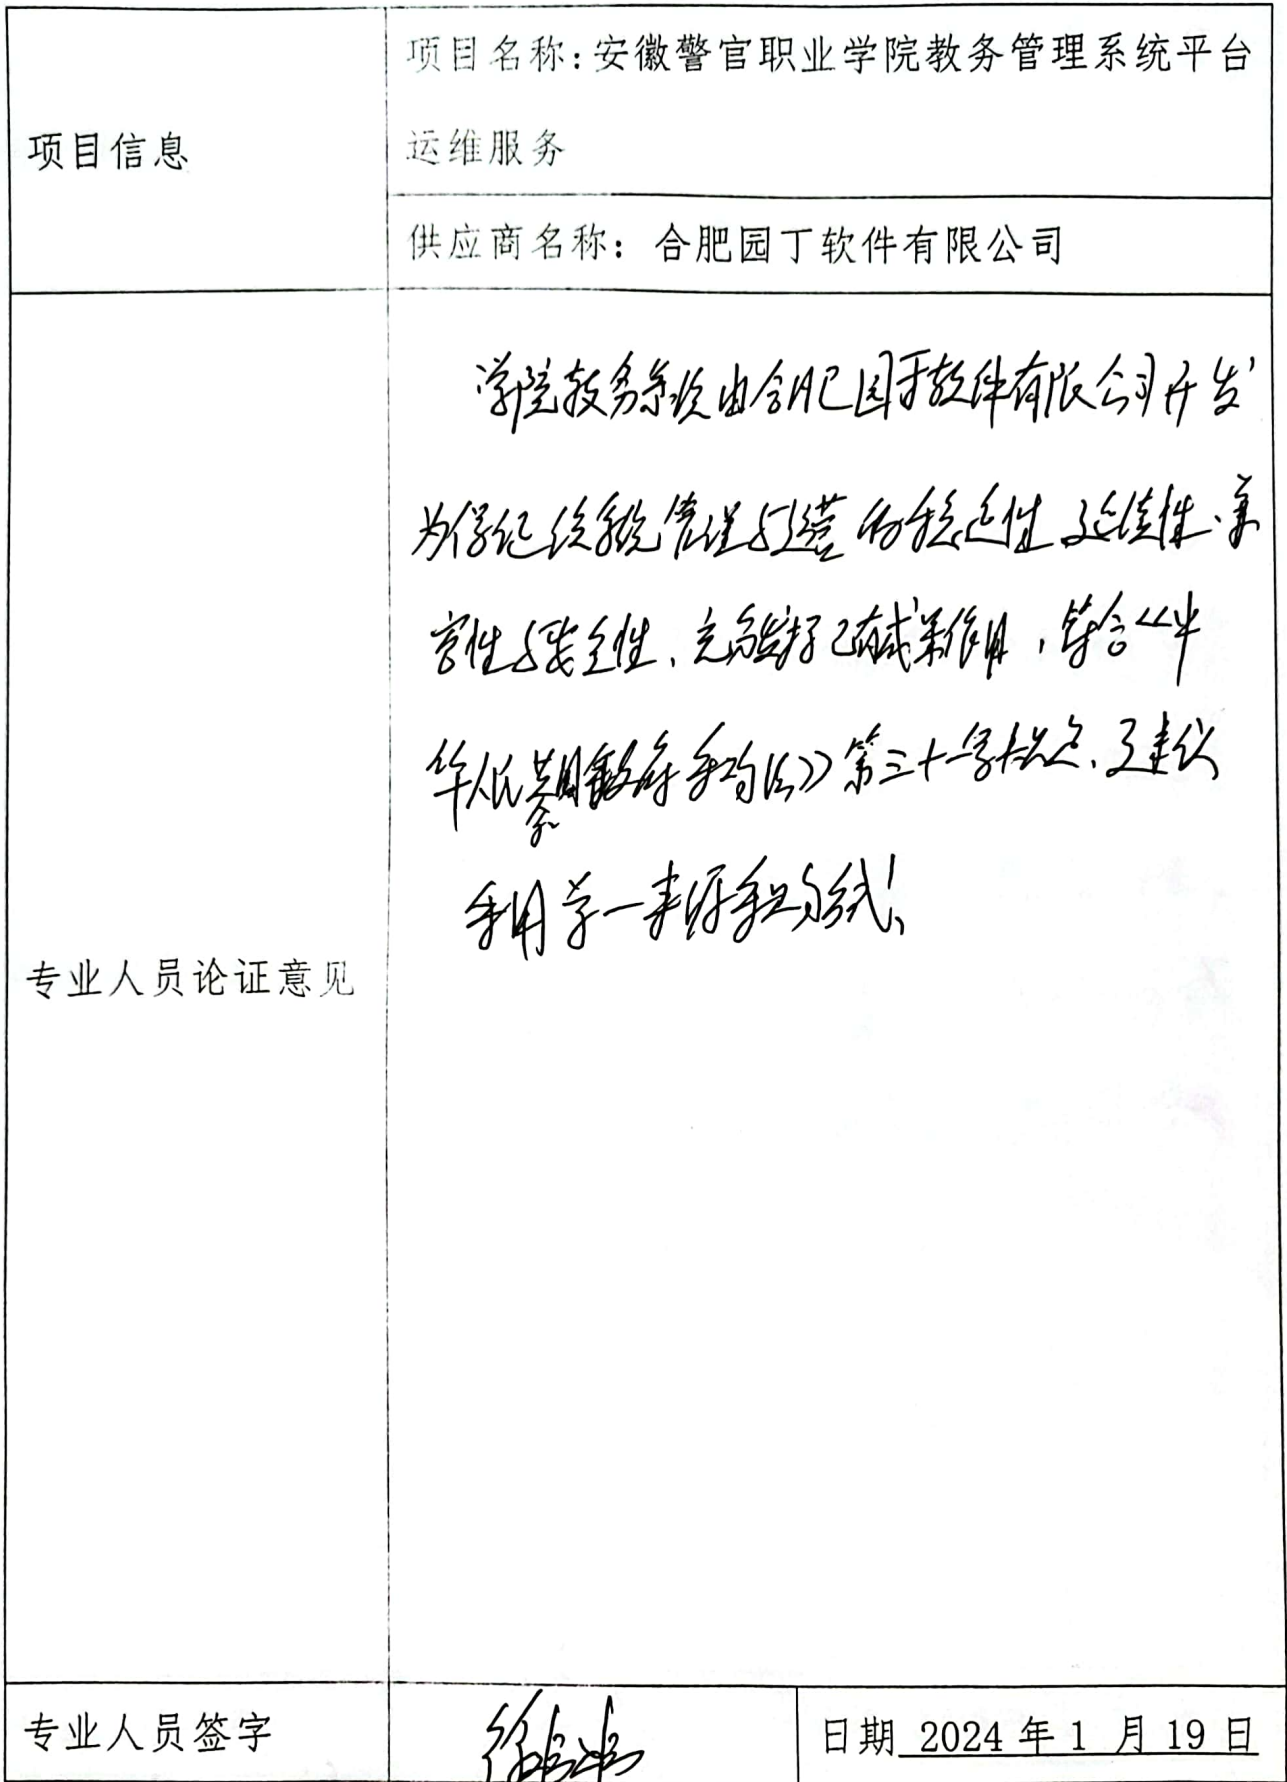 项目信息
项目名称:安徽警官职业学院教务管理系统平台
运维服务
供应商名称：合肥园丁软件有限公司
专业人员论证意见
学院教务系统由合肥园丁软件有限公司开发,
为保证该系统管理与运营的稳定性、延续性、兼
容性与安全性、充分发挥已有成果作用，符合《中
华人民共和国政府采购法》第三十一条规定、建议
采用单一来源采购方式!
专业人员签字
日期 2024年1月19日